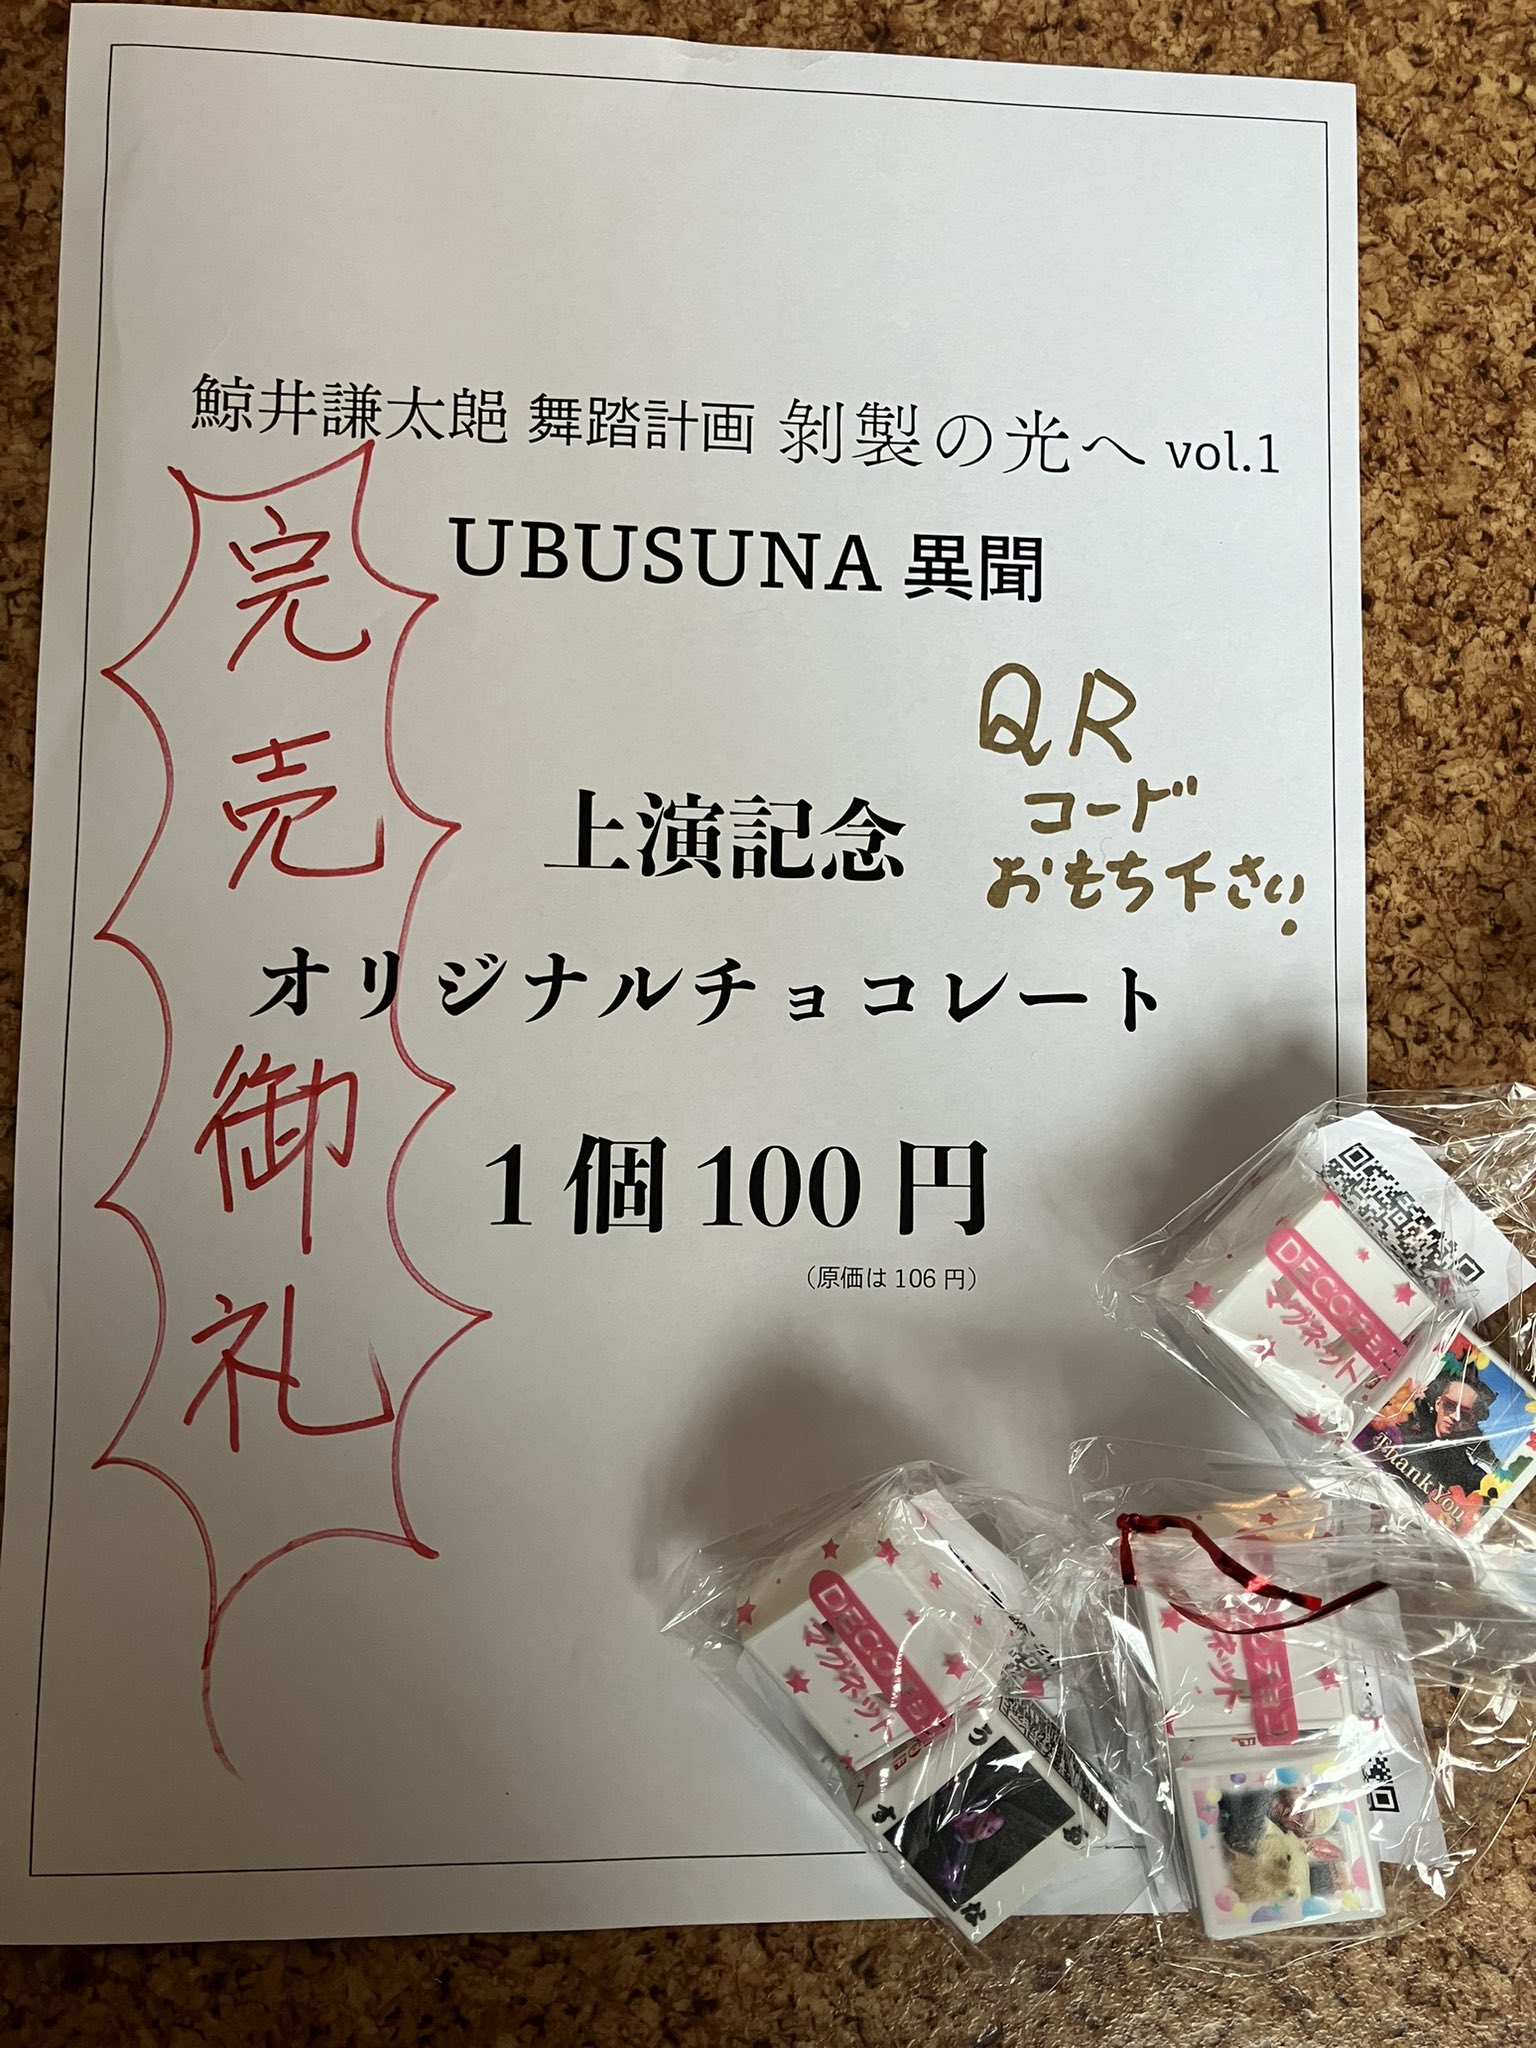 鯨井謙太郒 舞踏計画 剝製の光へ vol.1
UBUSUNA 異聞
完売御礼
QR
コード
おもち下さい.
上演記念
オリジナルチョコレート
1個100円
（原価は106円）
DECOチョコ
マグネット
Thank You
DECOチョコ
マグネット
うぶすな
DECOチョコ
マグネット